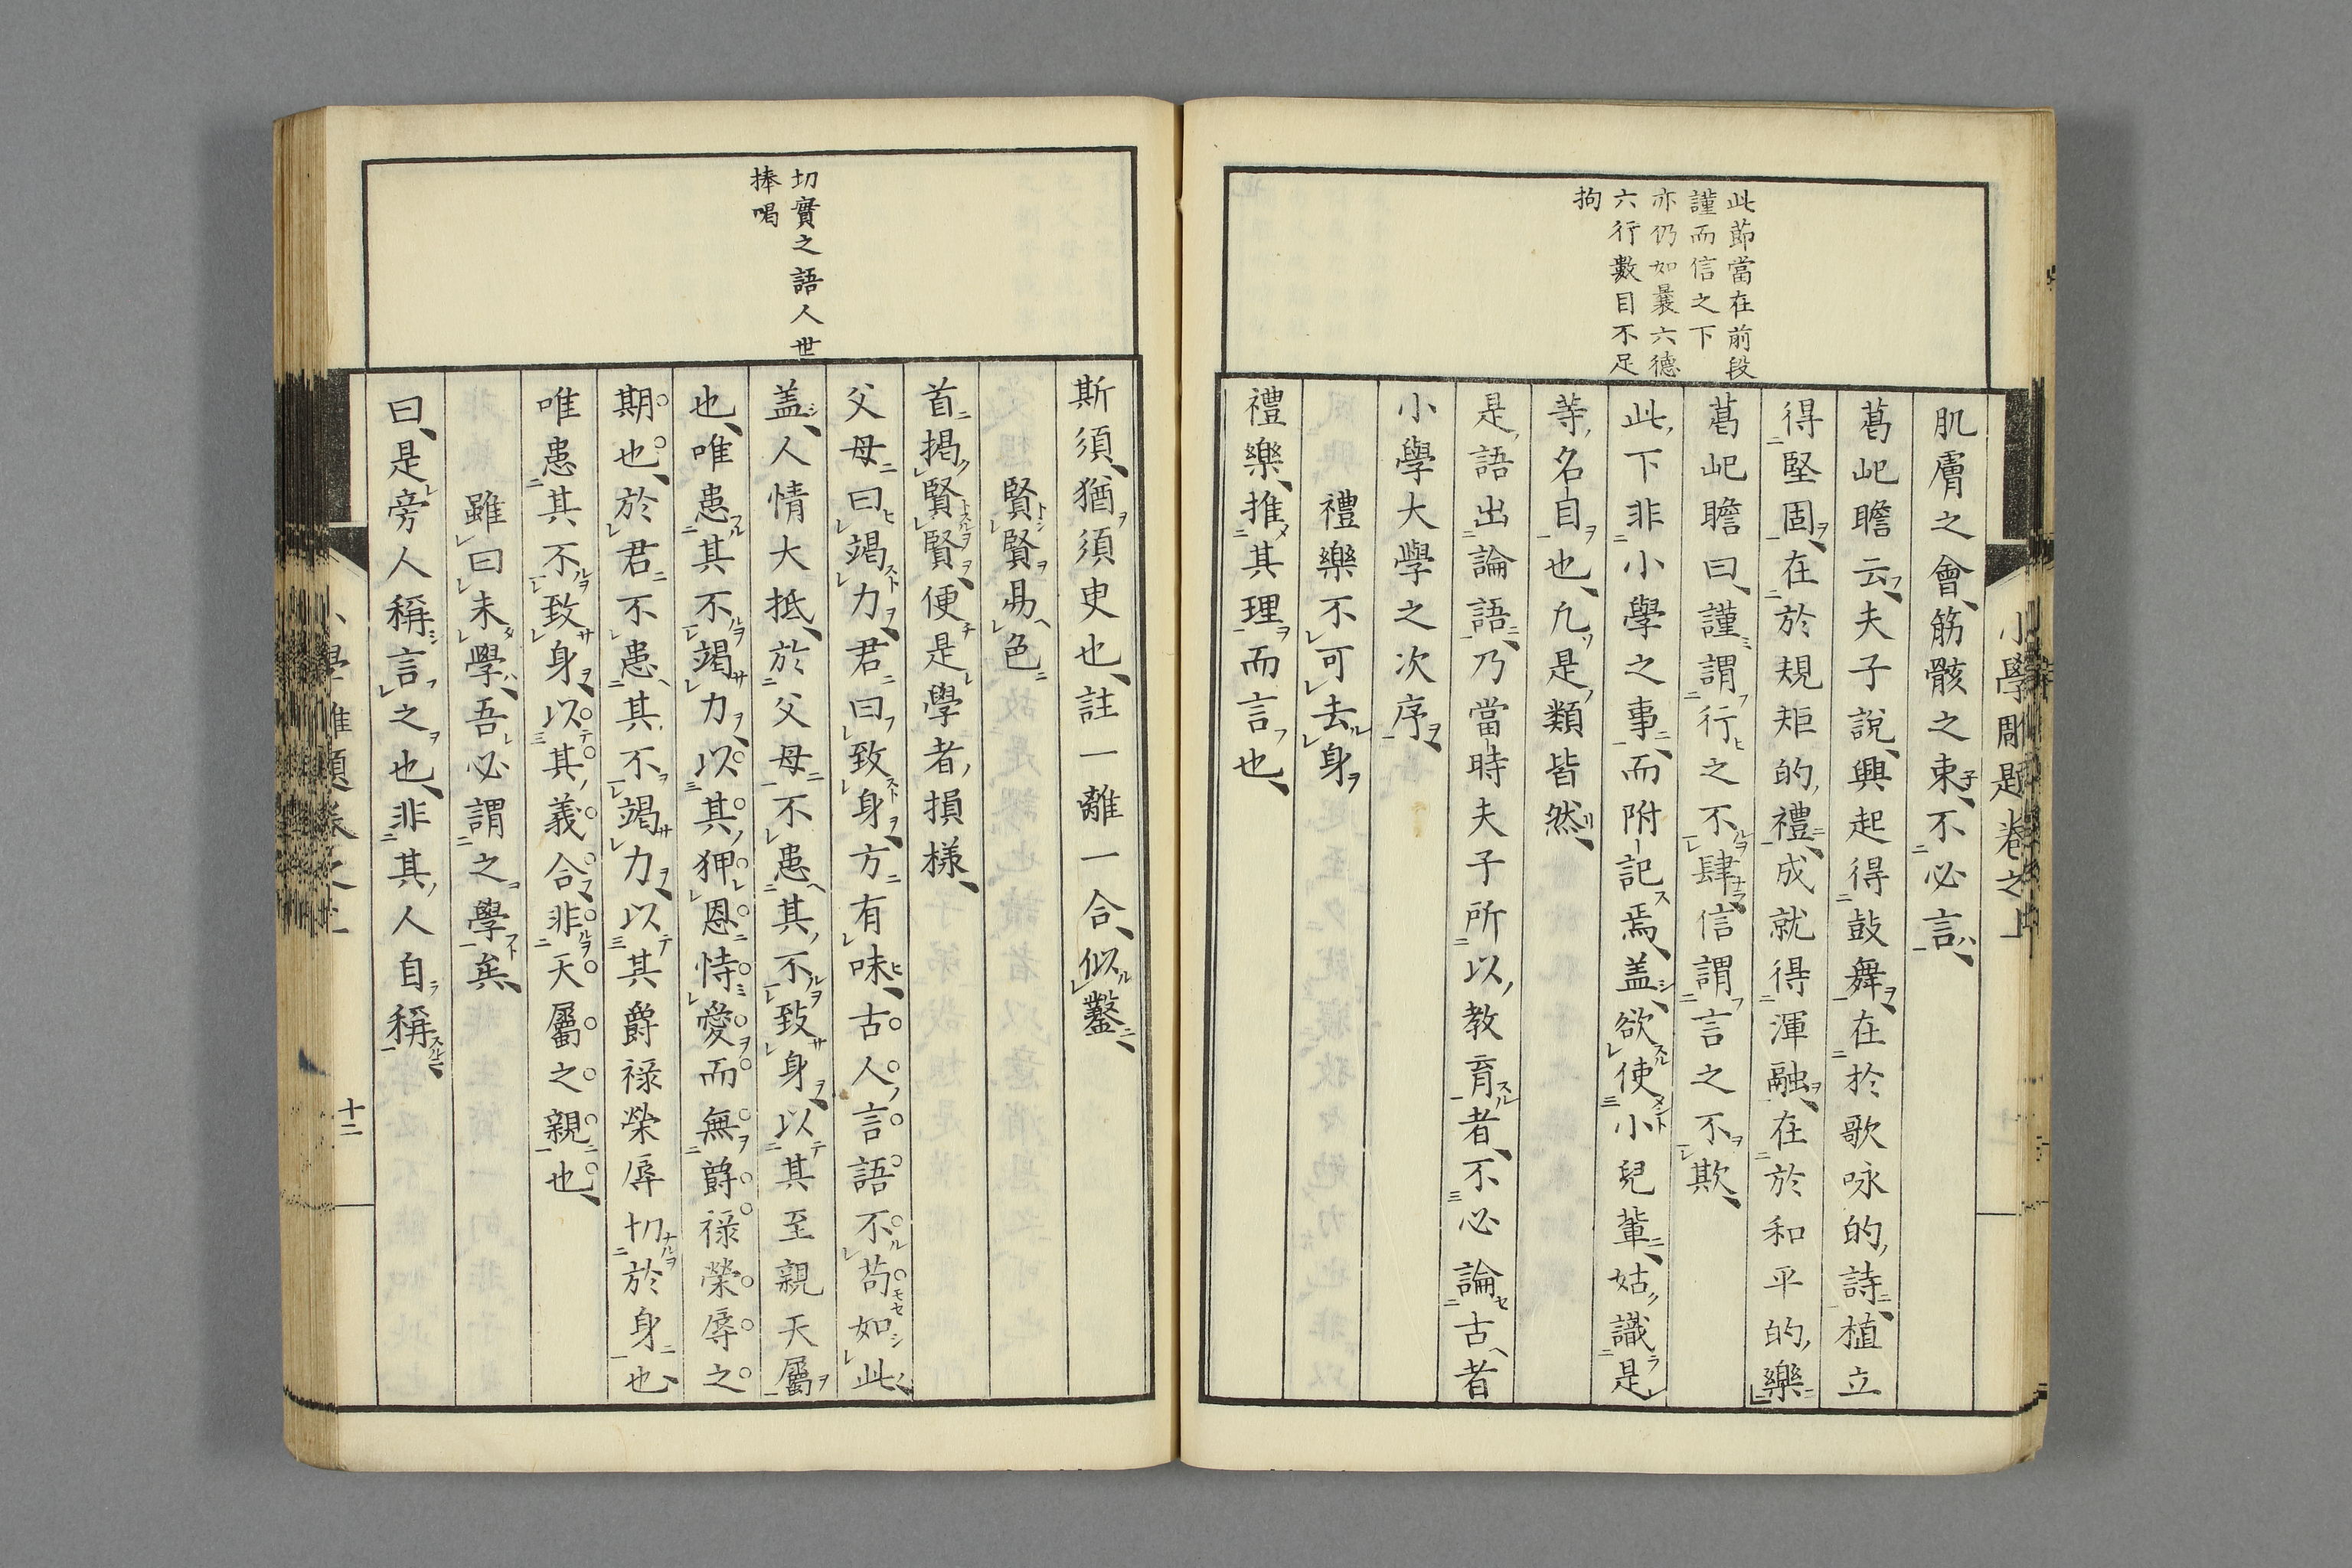 此節當在前段
謹而信之下
亦仍如曩六德
六行數目不足
拘
小學雕題卷之上
肌膚之會、筋骸之束、不必言、
葛屺瞻云、夫子說、興起得鼓舞、在於歌咏的、詩、植立
得堅固、在於規矩的、禮、成就得渾融、在於和平的、樂
葛屺瞻曰、謹謂行之不肆、信謂言之不欺、
此、下非小學之事、而附記焉、盖欲使小兒輩、姑識是
等、名自也、凢是類皆然、
是、語出論語、乃當時夫子所以教育者、不必論古、者
小學大學之次序、
禮樂不可去身
禮樂、推其理而言也、
切實之語人世
捧喝
斯須、猶須叓也、註一離一合、似鑿、
賢賢易色
首揭賢賢、便是學者、損樣、
父母曰竭力、君曰致身、方有味、古人言語不苟如此、
盖、人情大抵、於父母不患其不致身、以其至親天屬
也、唯患其不竭力、以其狎恩恃愛而無爵祿榮辱之
期也、於君不患其不竭力、以其爵祿榮辱切於身也、
唯患其不致身、以其義合非天屬之親也、
雖曰未學、吾必謂之學矣、
曰、是旁人稱言之也、非其人自稱、
十二